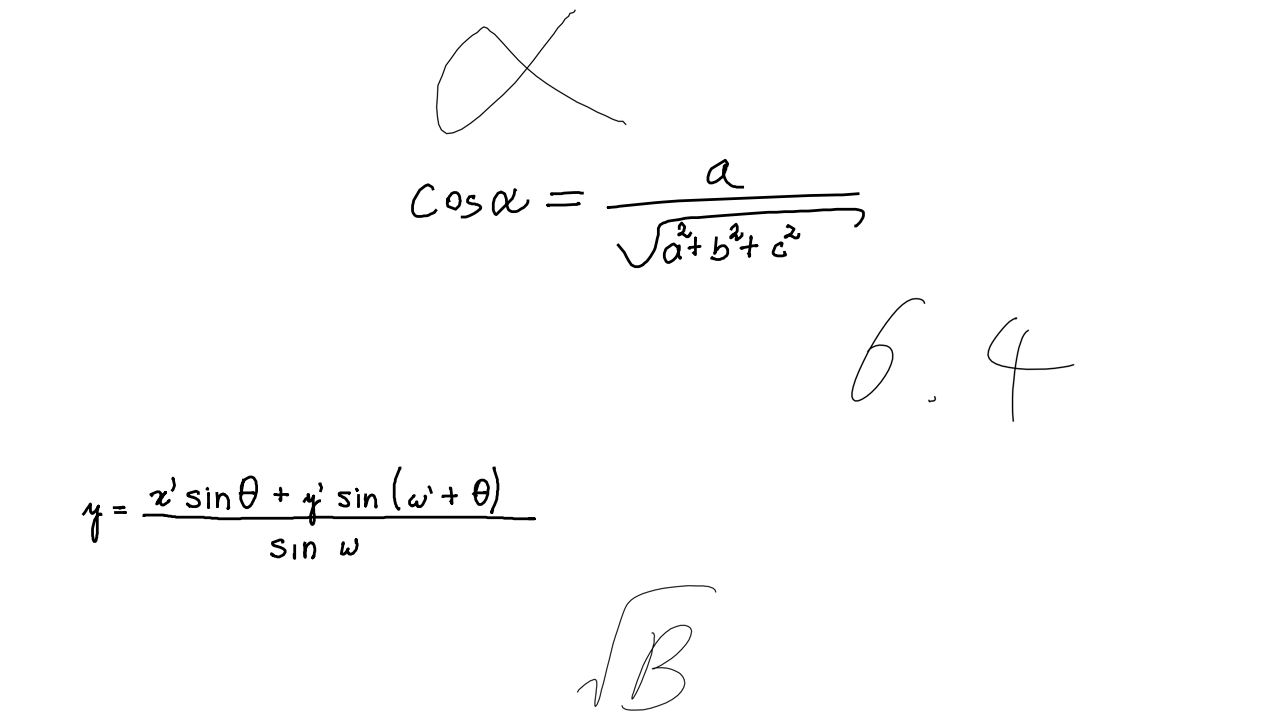 α
cos α = a / √(a² + b² + c²)
6.4
y = (x' sin θ + y' sin (ω' + θ)) / sin ω
√B